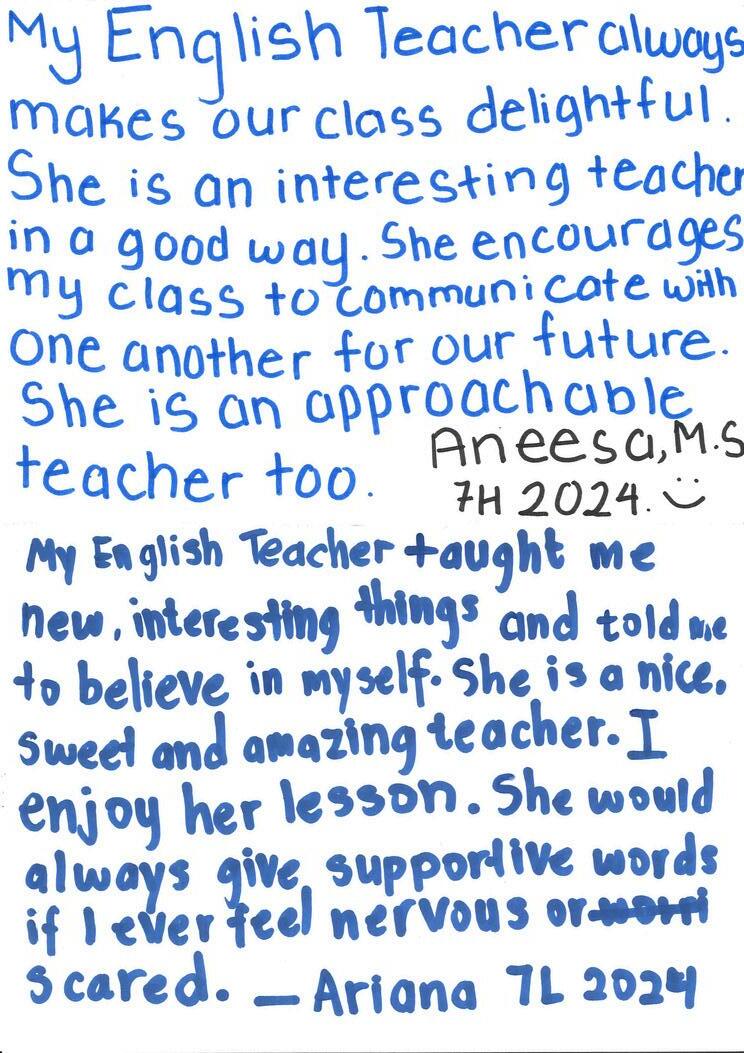 My English Teacher always
makes our class delightful.
She is an interesting teacher
in a good way. She encourages
my class to communicate with
one another for our future.
She is an approachable
teacher too.
Aneesa, M.S
7H 2024. :)
My English Teacher taught me
new, interesting things and told me
to believe in myself. She is a nice,
sweet and amazing teacher. I
enjoy her lesson. She would
always give supportive words
if I ever feel nervous or
scared. — Ariana 7L 2024